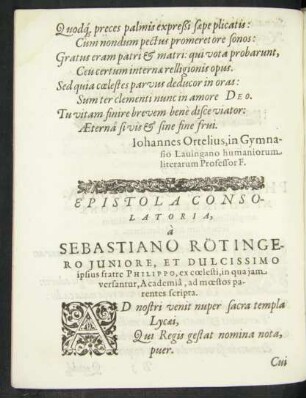 Quodq́, preces palmis expreßi ſæpe plicatis:
Cum nondum pectus promeret ore ſonos:
Gratus eram patri & matri: qui vota probarunt,
Ceu certum internæ relligionis opus.
Sed quia cœleſtes parvus deducor in oras:
Sum ter clementi nunc in amore DEO.
Tu vitam finire brevem benè diſce viator:
Æternâ ſi vis & ſine fine frui.
Iohannes Ortelius, in Gymna-
ſio Lauingano humaniorum
literarum Profeſſor F.
EPISTOLA CONSO-
LATORIA,
à
SEBASTIANO RÖTINGE-
RO JUNIORE, ET DULCISSIMO
ipſius fratre PHILIPPO, ex cœleſti, in qua jam
verſantur, Academiâ, ad mœſtos pa-
rentes ſcripta.
AD noſtri venit nuper ſacra templa
Lycæi,
Qui Regis geſtat nomina nota,
puer.
Cui